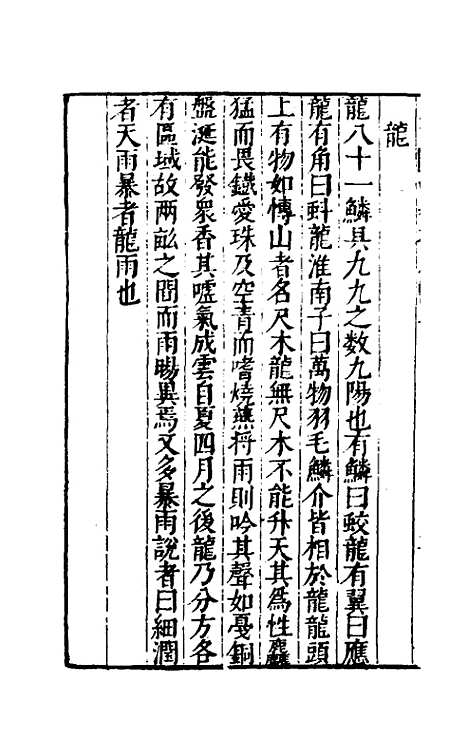 龍
龍八十一鱗具九九之數九陽也有鱗曰蛟龍有翼曰應
龍有角曰虯龍淮南子曰萬物羽毛鱗介皆祖於龍龍頭
上有物如博山者名尺木龍無尺木不能升天其為性麤
猛而畏鐵愛珠及空青而嗜燒燕將雨則吟其聲如戛銅
盤涎能發衆香其噓氣成雲自夏四月之後龍乃分方各
有區域故兩畝之間而雨暘異焉又多暴雨說者曰細潤
者天雨暴者龍雨也